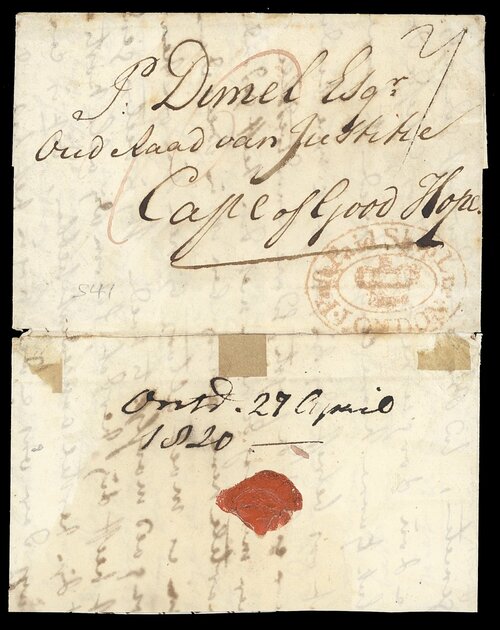 P. Dimel Esqr
Oud Raad van Justitie
Cape of Good Hope.
LONDON
S41
Ontd. 27 April
1820